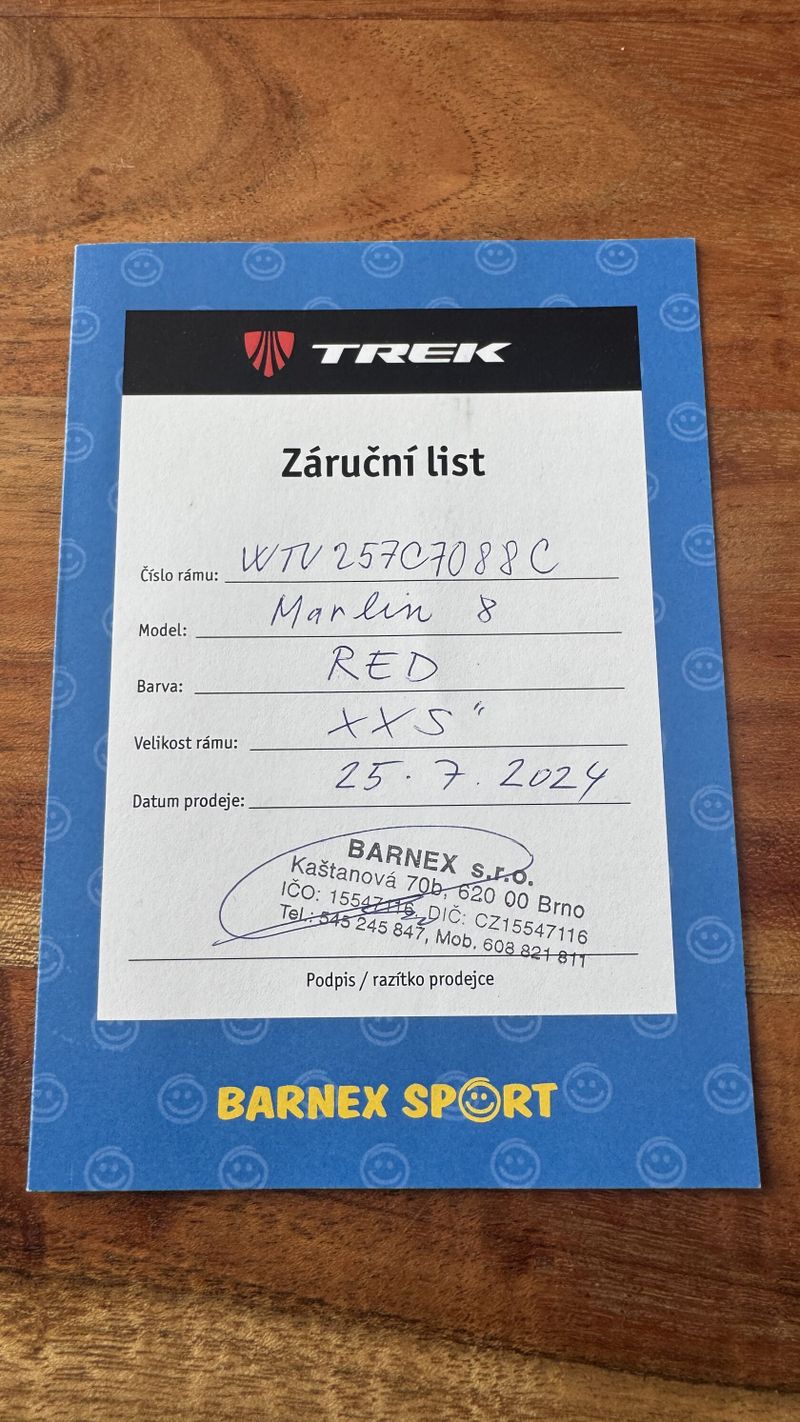 TREK
Záruční list
Číslo rámu: WTU257C7088C
Model: Marlin 8
Barva: RED
Velikost rámu: XXS"
Datum prodeje: 25.7.2024
BARNEX s.r.o.
Kaštanová 70b, 620 00 Brno
IČO: 15547116, DIČ: CZ15547116
Tel.: 545 245 847, Mob. 608 821 811
Podpis / razítko prodejce
BARNEX SPORT